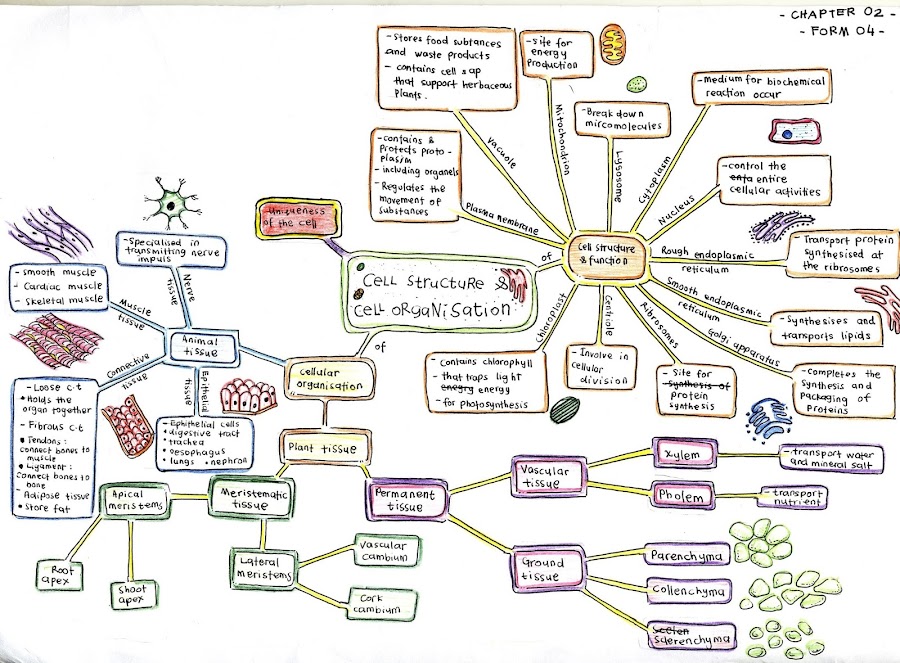 - CHAPTER 02 -
- FORM 04 -
- Stores food subtances
and waste products
- contains cell sap
that support herbaceous
plants.
- Site for
energy
production
- Break down
mircomolecules
- medium for biochemical
reaction occur
- contains &
protects proto-
plasim
- including organels
- Regulates the
movement of
substances
- control the
enta entire
cellular activities
Vacuole
Mitochondrion
Lysosome
Cytoplasm
Nucleus
Plasma nembrane
Uniqueness
of the cell
Cell structure
& function
of
Rough endoplasmic
reticulum
Transport protein
synthesised at
the ribrosomes
CELL STRUCTURE &
CELL ORGANISATION
Smooth endoplasmic
reticulum
- Synthesises and
transports lipids
Golgi apparatus
- Completes the
Synthesis and
Packaging of
Proteins
Ribrosomes
- Site for
synthesis of
protein
synthesis
Centriole
- Involve in
cellular
division
Chloroplast
- contains chlorophyll
- that traps light
enegry energy
- for photosynthesis
of
Cellular
organisation
- Specialised in
transmitting nerve
impuls
- smooth muscle
- Cardiac muscle
- Skeletal muscle
Nerve
tissue
Muscle
tissue
Animal
tissue
Connective
tissue
Epithelial
tissue
- Loose c.t
• Holds the
organ together
- Fibrous c.t
• Tendons:
connect bones to
muscle
• Ligament:
Connect bones to
bone
- Adipose tissue
• Store fat
- Ephithelial cells
• digestive tract
• trachea
• oesophagus
• lungs • nephron
Plant tissue
Meristematic
tissue
Apical
meristems
Root
apex
Shoot
apex
Lateral
meristems
Vascular
cambium
Cork
cambium
Permanent
tissue
Vascular
tissue
Xylem
- transport water
and mineral salt
Pholem
- transport
nutrient
Ground
tissue
Parenchyma
Collenchyma
Scelen
Sclerenchyma